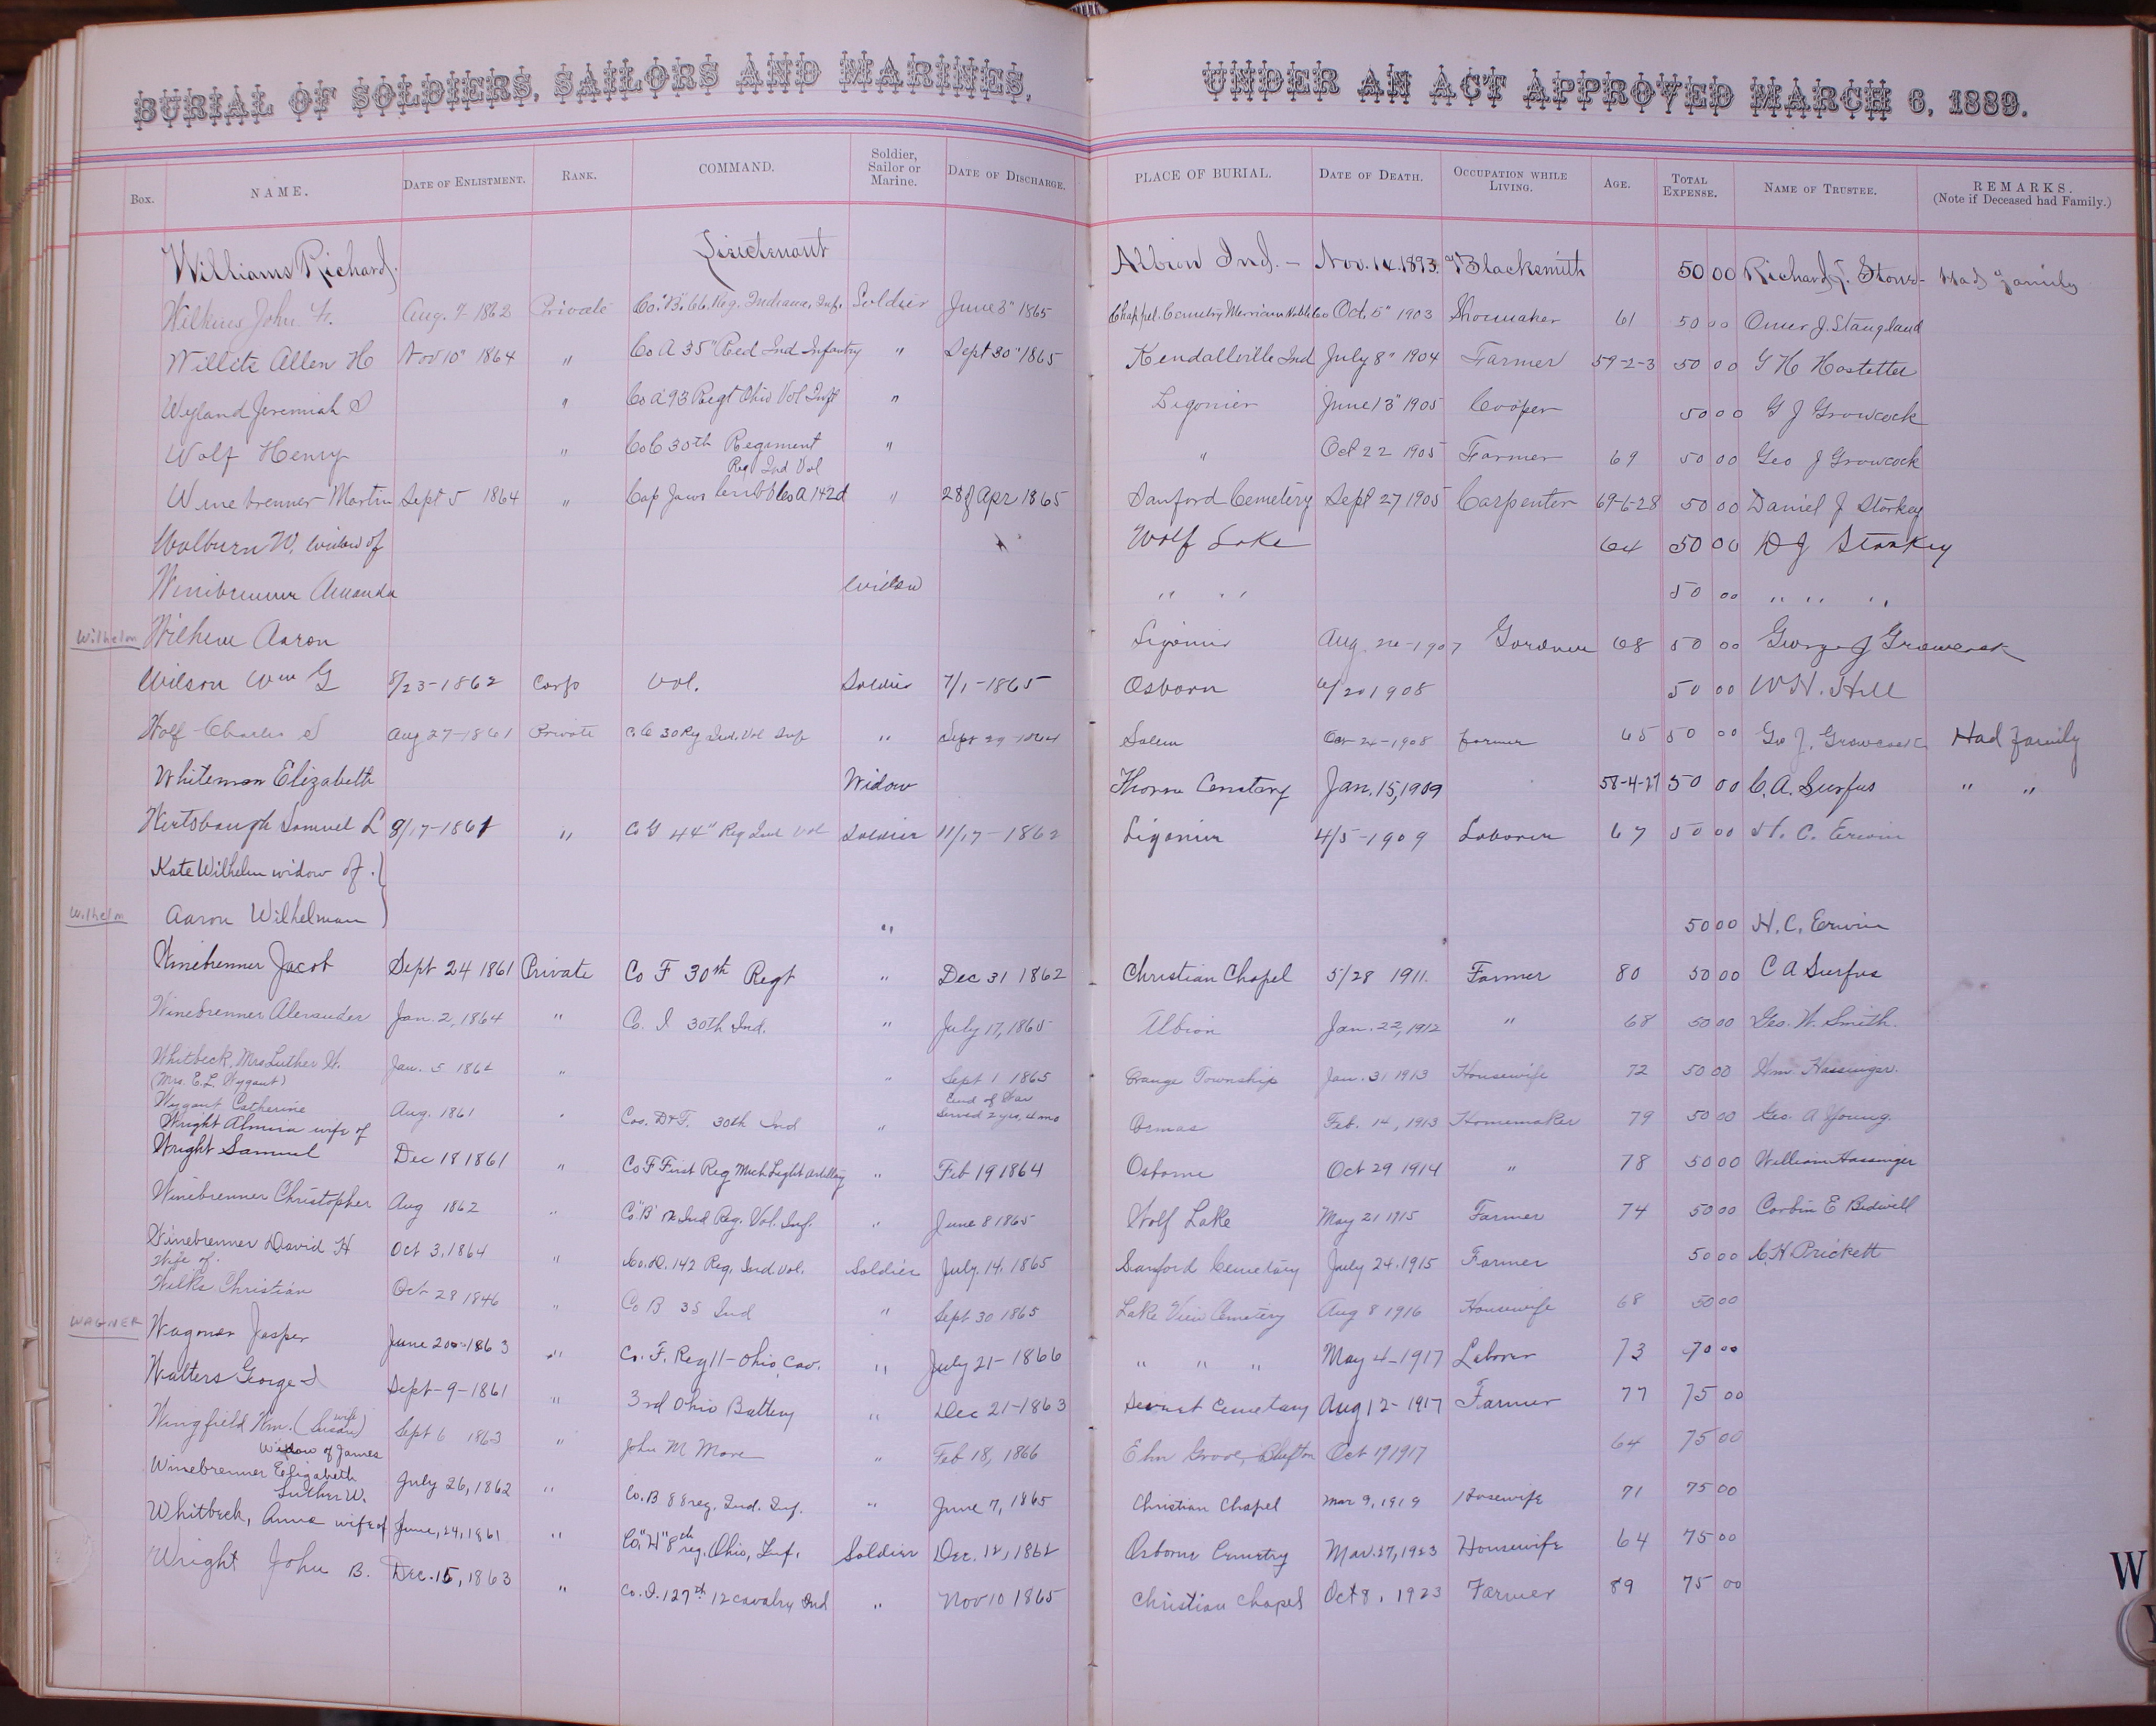 BURIAL OF SOLDIERS, SAILORS AND MARINES, UNDER AN ACT APPROVED MARCH 6, 1889.
Box. NAME. DATE OF ENLISTMENT. RANK. COMMAND. Soldier, Sailor or Marine. DATE OF DISCHARGE. PLACE OF BURIAL. DATE OF DEATH. OCCUPATION WHILE LIVING. AGE. TOTAL EXPENSE. NAME OF TRUSTEE. REMARKS. (Note if Deceased had Family.)
Williams Richard Lieutenant Albion Ind. - Nov. 14. 1893. Blacksmith 50 00 Richard Stone - Had Family
Wilkins John Aug. 7 1862 Private Co. "B" 66. Reg. Indiana, Inf. Soldier June 3" 1865 Chappel Cemetry Merriam Noble Co Oct. 5" 1903 Shoemaker 61 50 00 Omer J. Stangland
Willitz Allen H Nov 10" 1864 " Co A 35" Red Ind Infantry " Sept 30" 1865 Kendallville Ind July 8" 1904 Farmer 59-2-3 50 00 G H Hostetter
Weyland Jeremiah S " Co A 93 Regt Ohio Vol Inft " Ligonier June 13" 1905 Cooper 50 00 G J Growcock
Wolf Henry " Co C 30th Regiment Reg Ind Vol " " Oct 22 1905 Farmer 69 50 00 Geo J Growcock
Winebrenner Martin Sept 5 1864 " Cap Co A 142d " 28 of Apr 1865 Sanford Cemetery Sept 27 1905 Carpenter 69-6-28 50 00 Daniel J Storkey
Walburn W, widow of Wolf Lake 64 50 00 D J Storkey
Winibrenner Amanda Widow " " 50 00 " " "
Wilhelm Wilhem Aaron Ligonier Aug. 1907 Gardner 68 50 00 George J Growcock
Wilson Wm G 8/23-1862 Corp Vol. Soldier 7/1-1865 Osborn 6/20 1908 50 00 W H. Hill
Wolf Charles S Aug 27-1861 Private C. C 30 Reg Ind. Vol Inf " Sept 29-1864 Salem 1908 farmer 65 50 00 Geo J. Growcock Had Family
Whiteman Elizabeth Widow Thorn Cemetary Jan. 15, 1909 58-4-27 50 00 C. A. Surfus " "
Wertsbaugh Samuel L 8/17-1861 " Co G 44" Reg Ind Vol Soldier 11/17-1862 Ligonier 4/5-1909 Laborer 67 50 00 H. C. Erwin
Kate Wilhelm widow of
Wilhelm Aaron Wilhelman " 50 00 H. C. Erwin
Winebrenner Jacob Sept 24 1861 Private Co F 30th Regt " Dec 31 1862 Christian Chapel 5/28 1911. Farmer 80 50 00 C A Surfus
Winebrenner Alexander Jan. 2, 1864 " Co. I 30th Ind. " July 17, 1865 Albion Jan. 22, 1912 " 68 50 00 Geo. W. Smith.
Whitbeck, Mrs Luther W. Jan. 5 1864 " " Sept 1 1865 Orange Township Jan. 31 1913 Housewife 72 50 00 Wm. Hassinger.
(Mrs. E. L. Wygant) End of War
Wygant Catherine Aug. 1861 " Cos. D & F. 30th Ind " Served 2 yrs, 4 mo Feb. 14, 1913 Homemaker 79 50 00 Geo. A Young.
Wright Almira wife of
Wright Samuel Dec 18 1861 " Co F First Reg Mich Light Artillery " Feb 19 1864 Osborne Oct 29 1914 " 78 50 00 William Hassinger
Winebrenner Christopher Aug 1862 " Co. "B" 12 Ind Reg. Vol. Inf. " June 8 1865 Wolf Lake May 21 1915 Farmer 74 50 00 Corbin E Bidwell
Winebrenner David H Oct 3, 1864 " Co. 142 Reg. Ind. Vol. Soldier July. 14. 1865 Sanford Cemetary July 24. 1915 Farmer 50 00 C. H Prickett
Wife of.
Wilks Christian Oct 28 1846 " Co B 35 Ind " Sept 30 1865 Lake View Cemetery Aug 8 1916 Housewife 68 50 00
WAGNER Wagoner Jasper June 20-1863 " Co. F. Reg 11-Ohio, Cav. " July 21-1866 " " " May 4-1917 Laborer 73 70 00
Walters George Sept-9-1861 " 3rd Ohio Battery " Dec 21-1863 Cemetary Aug 12-1917 Farmer 77 75 00
Wingfield Wm. (wife Susan) Sept 6 1863 " John M More " Feb 18, 1866 Elm Grove, Bluffton Oct 1917 64 75 00
Widow of James
Winebrenner Elizabeth July 26, 1862 " Co. B 88 reg. Ind. Inf. " June 7, 1865 Christian Chapel Mar 9, 1919 Housewife 71 75 00
Luther W.
Whitbeck, Anna wife of June, 24, 1861 " Co. "H" 8th reg. Ohio, Inf. Soldier Dec. 12, 1862 Osborne Cemetry Mar. 27, 1923 Housewife 64 75 00
Wright John B. Dec. 15, 1863 " Co. I. 127th 12 Cavalry Ind " Nov 10 1865 Christian Chapel Oct 8, 1923 Farmer 89 75 00
W